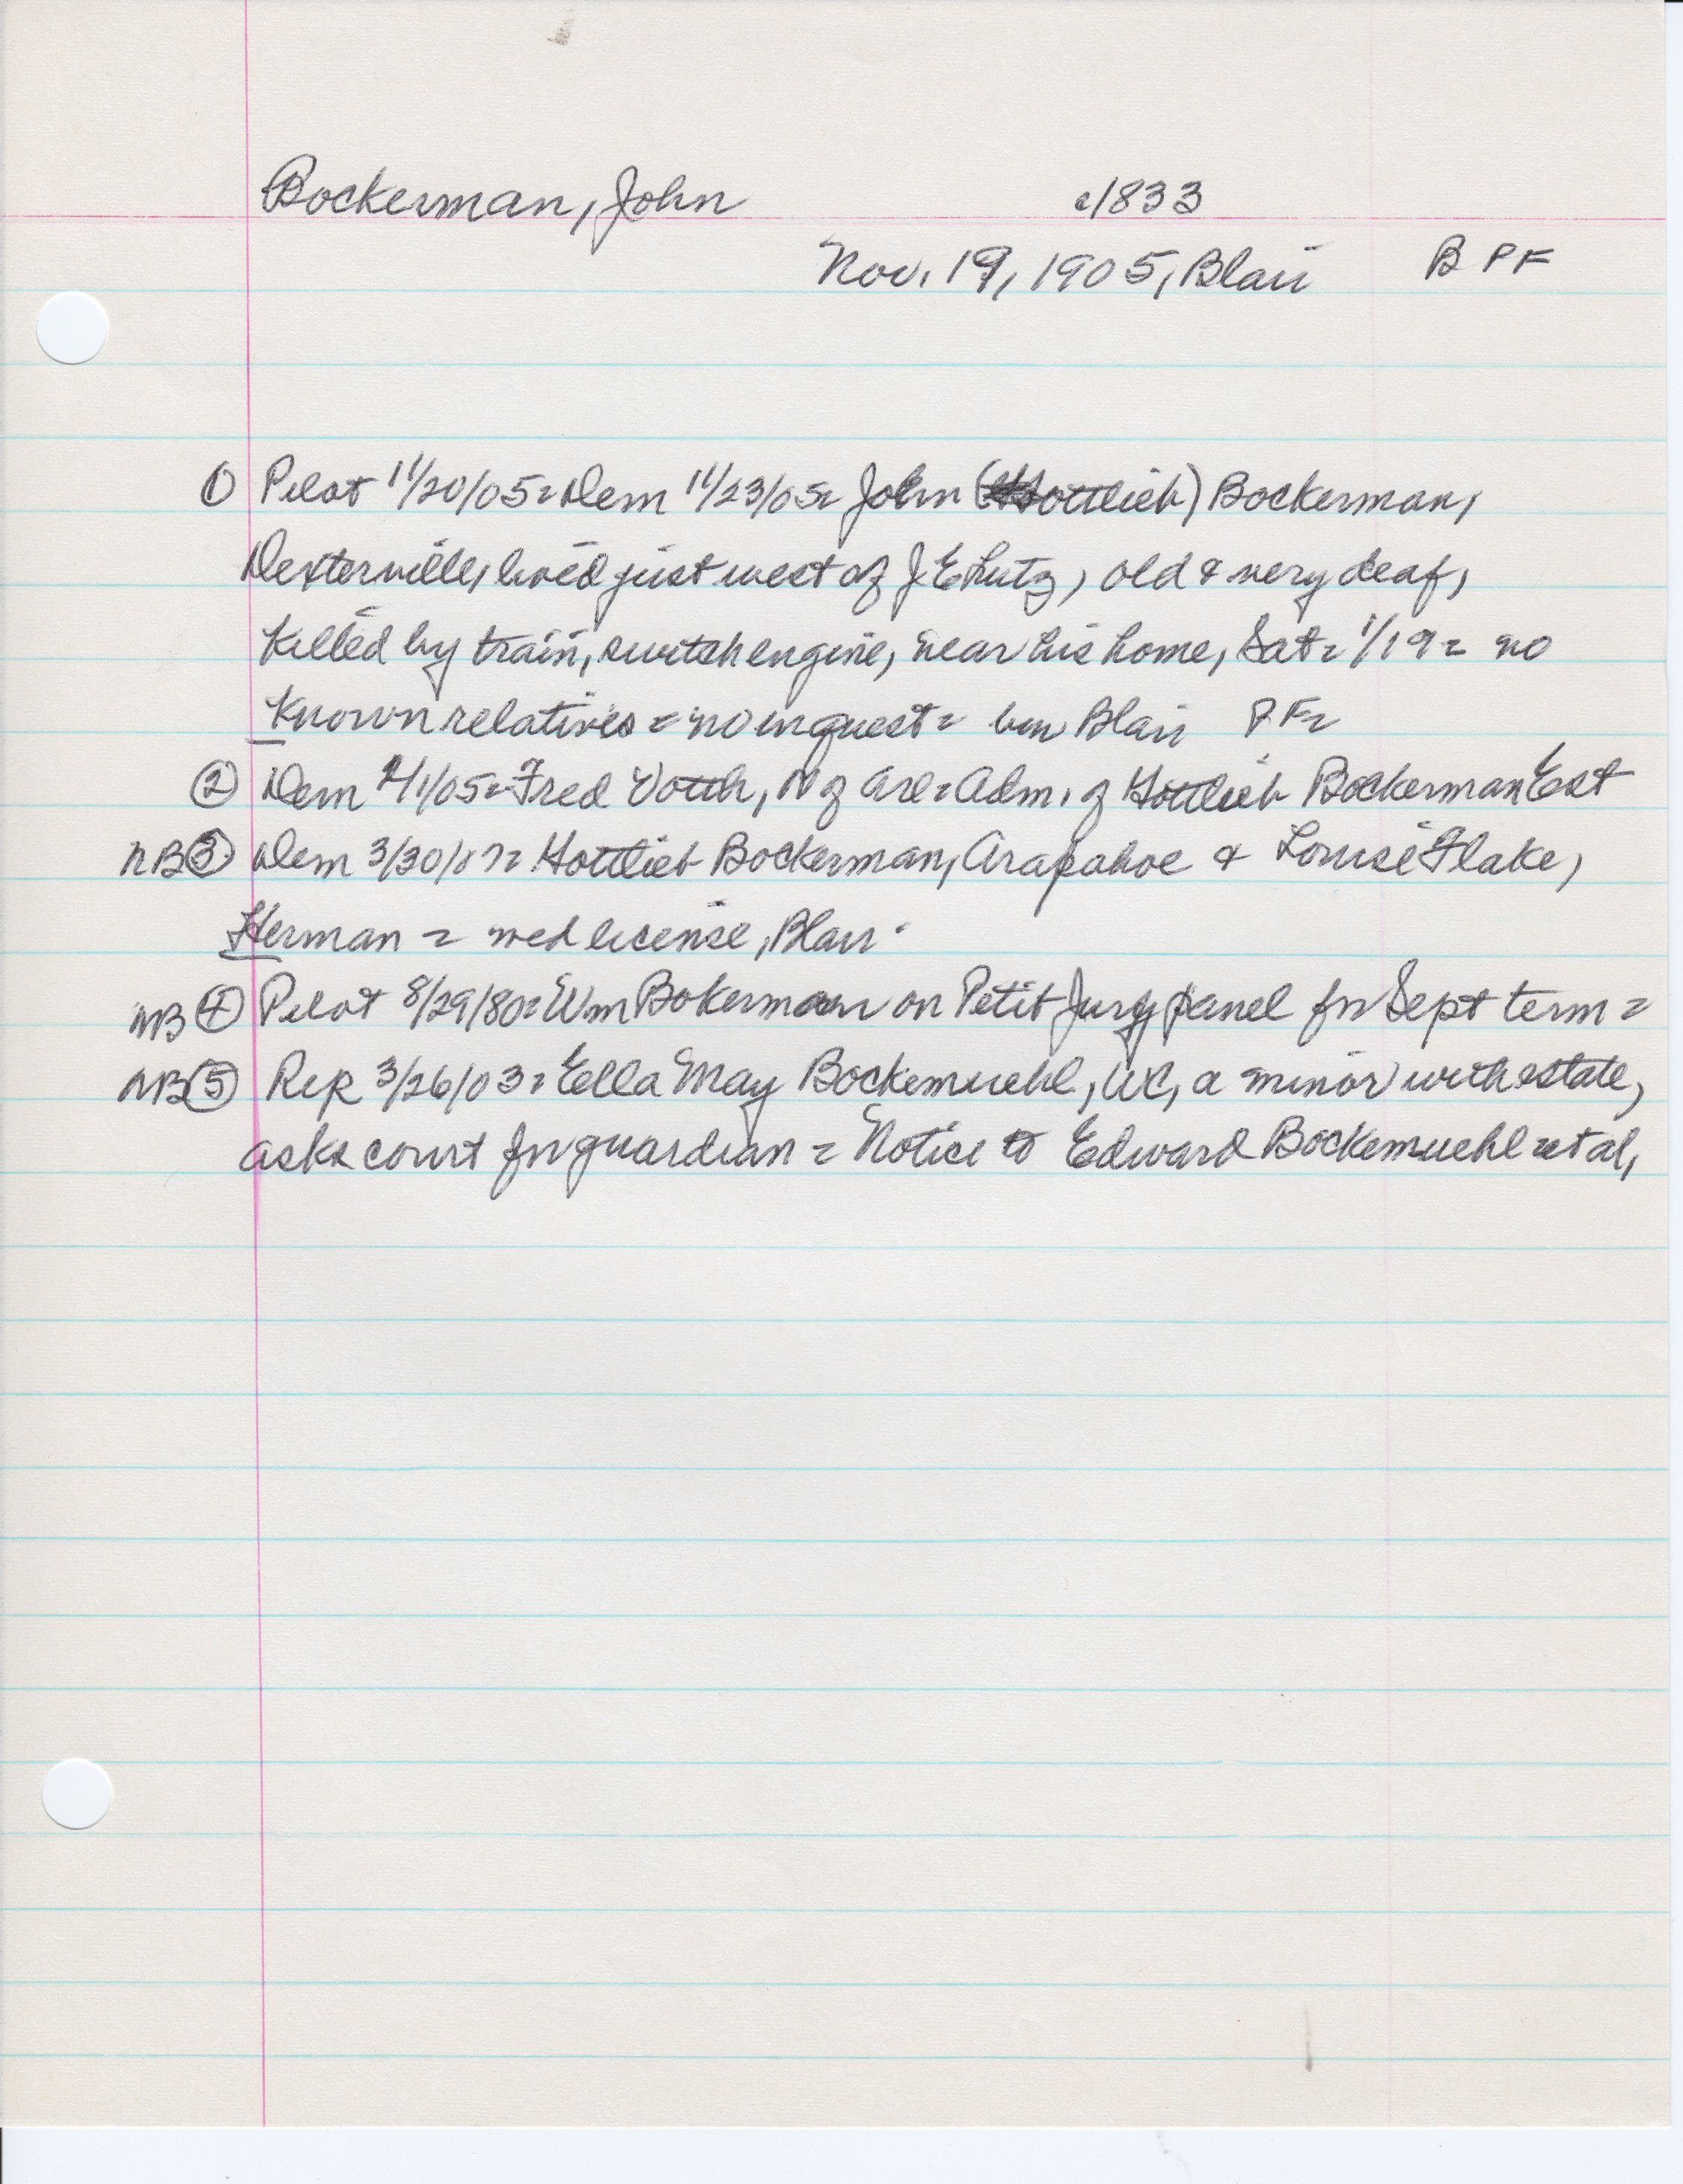 Bockerman, John c1833
Nov. 19, 1905, Blair B P F
① Pilot 11/20/05 = Dem 11/23/05 = John (Gottlieb) Bockerman,
Dexterville, lived just west of J E Lutz, old & very deaf,
killed by train, switch engine, near his home, Sat = 1/19 = no
known relatives = no inquest = bur Blair P.F. =
② Dem /1/05 = Fred Voth, N of Arl = Adm. of Gottlieb Bockerman Est
NB ③ Dem 3/30/ = Gottlieb Bockerman, Arapahoe & Louise Flake,
Herman = wed license, Blair.
NB ④ Pilot 8/29/80 = Wm Bokerman on Petit Jury panel for Sept term =
NB ⑤ Rep 3/26/03 = Ella May Bockemuehl, WC, a minor with estate,
asks court for guardian = Notice to Edward Bockemuehl et al,